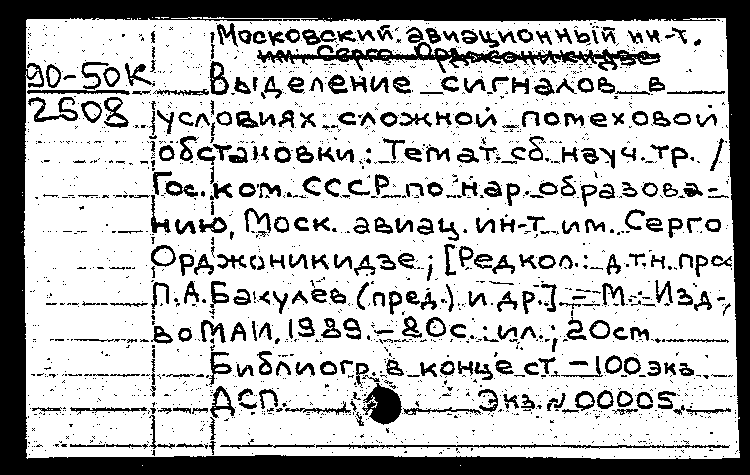 Московский авиационный ин-т.
им. Серго Орджоникидзе
90-50К Выделение сигналов в
2508 условиях сложной помеховой
обстановки: Темат. сб. науч. тр. /
Гос. ком. СССР по нар. образова-
нию, Моск. авиац. ин-т им. Серго
Орджоникидзе; [Редкол.: д.т.н. проф
П.А. Бакулев (пред.) и др.]. - М.: Изд-
во МАИ, 1989. - 80с.: ил.; 20см
Библиогр. в конце ст. - 100 экз.
ДСП. Экз. № 00005.